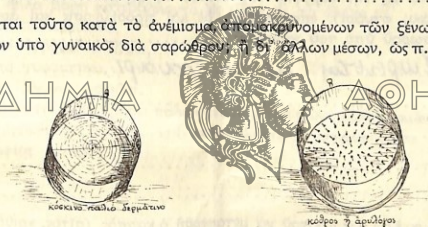 ται τοῦτο κατὰ τὸ ἀνέμισμα, ἀπομακρυνομένων τῶν ξένω
ν ὑπὸ γυναικὸς διὰ σαρώθρου; ἢ δι' ἄλλων μέσων, ὡς π.
ΔΗΜΙΑ
ΑΘΗ
κόσκινο παλιὸ δερμάτινο
κόθρος ἢ ἀριλόγος